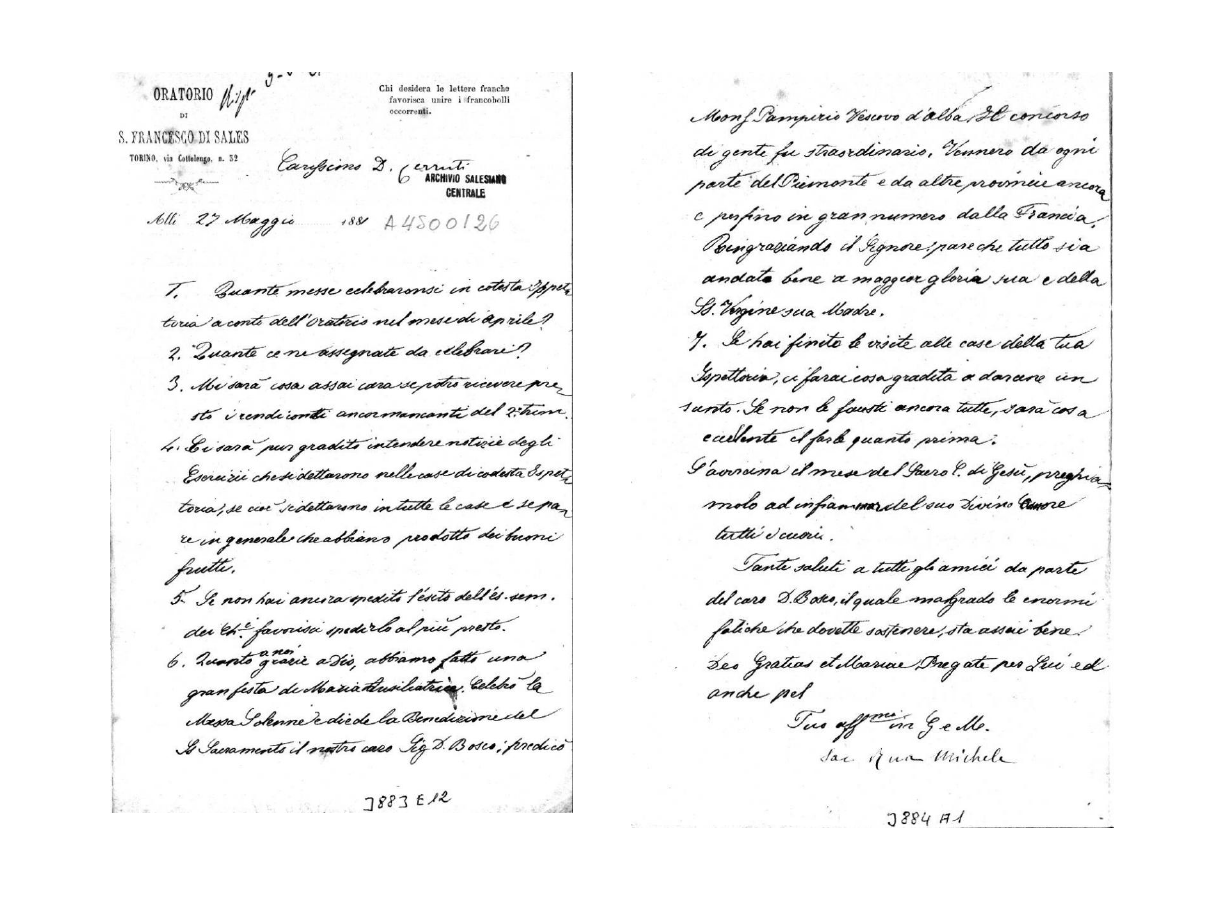 ORATORIO
DI
S. FRANCESCO DI SALES
TORINO, via Cottolengo, n. 32
Chi desidera le lettere franche
favorisca unire i francobolli
occorrenti.
Carissimo D. Cerruti
ARCHIVIO SALESIANO
CENTRALE
Alli 27 Maggio 1881 A4500126
1. Quante messe celebraronsi in cotesta Ispet-
toria a conto dell'Oratorio nel mese di Aprile?
2. Quante ce ne assegnate da celebrare?
3. Mi sarà cosa assai cara se potrò ricevere pre-
sto i rendiconti ancor mancanti del 2° trim.
4. Ci sarà pur gradito intendere notizie degli
Esercizii che si dettarono nelle case di codesta Ispet-
toria, se cioè si dettarono in tutte le case e se pa-
re in generale che abbiano prodotto dei buoni
frutti.
5. Se non hai ancora spedito l'esito dell'es. sem.
dei Ch.ci favorisci spedirlo al più presto.
6. Quanto a noi grazie a Dio, abbiamo fatto una
gran festa di Maria Ausiliatrice. Celebrò la
Messa Solenne e diede la Benedizione del
SS Sacramento il nostro caro Sig D. Bosco; predicò
J883 E12
Mons Pampirio Vescovo d'Alba. Il concorso
di gente fu straordinario. Vennero da ogni
parte del Piemonte e da altre provincie ancora
e perfino in gran numero dalla Francia.
Ringraziando il Signore, pare che tutto sia
andato bene a maggior gloria sua e della
SS. Vergine sua Madre.
7. Se hai finito le visite alle case della tua
Ispettoria, ci farai cosa gradita a darcene un
sunto. Se non le facesti ancora tutte, sarà cosa
eccellente il farle quanto prima.
S'avvicina il mese del Sacro C. di Gesù, preghia-
molo ad infiammar del suo Divino Amore
tutti i cuori.
Tanti saluti a tutti gli amici da parte
del caro D. Bosco, il quale malgrado le enormi
fatiche che dovette sostenere, sta assai bene.
Deo Gratias et Mariae. Pregate per Lui ed
anche pel
Tuo aff.mo in G e M.
Sac Rua Michele
J884 A1